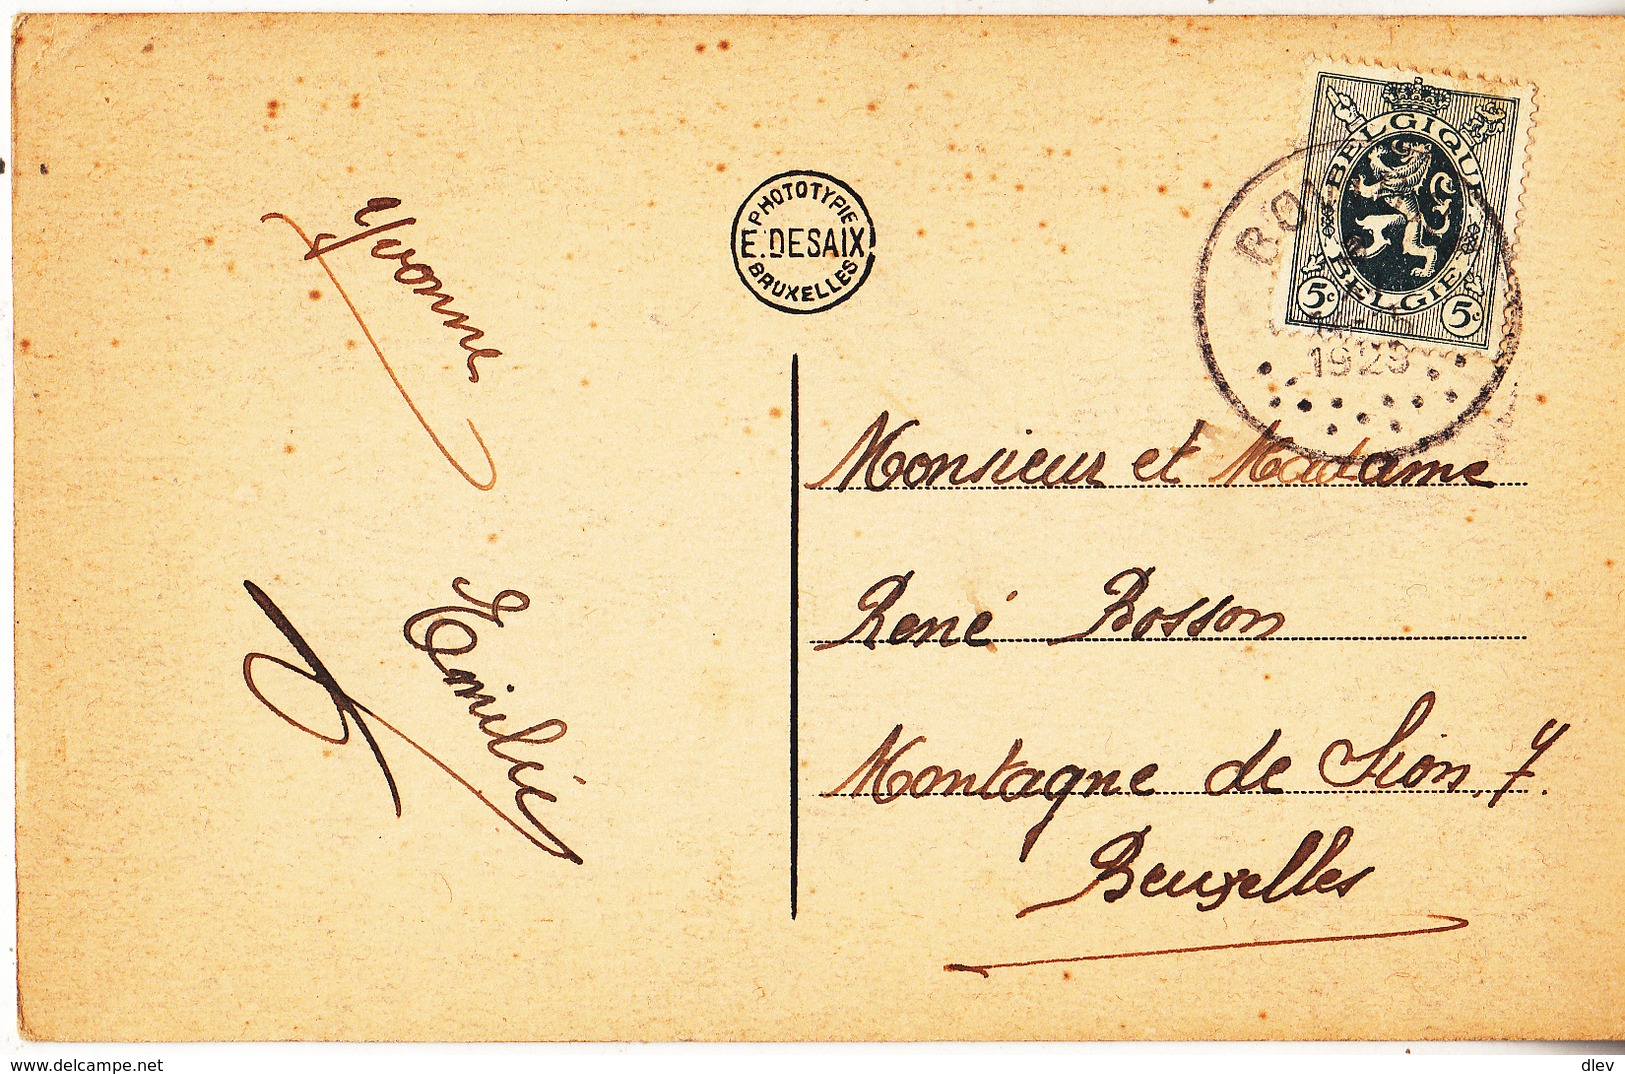 Yvonne
Emilie
PHOTOTYPIE
E. DESAIX
BRUXELLES
BELGIQUE
BELGIE
5c 5c
1929
Monsieur et Madame
René Bosson
Montagne de Sion, 7.
Bruxelles
delcampe.net
dlev